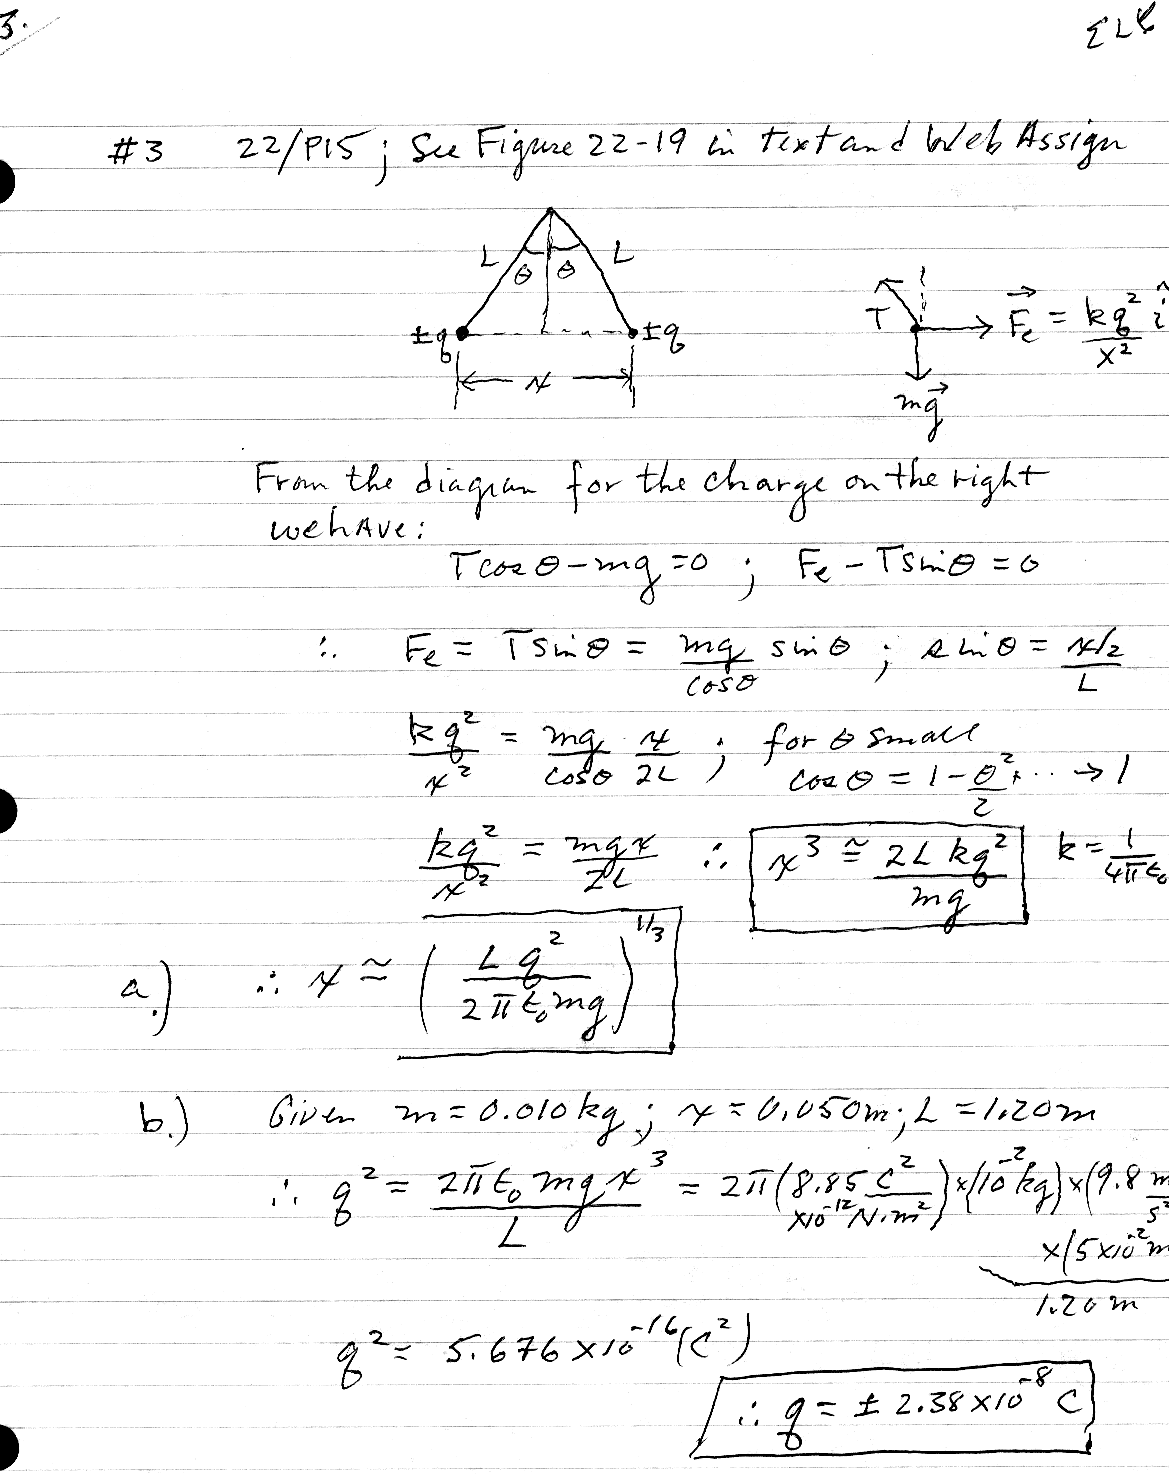 3.
#3 22/P15; See Figure 22-19 in text and Web Assign
L θ θ L
±q ±q
x
T F⃗e = kq²/x² î
mg⃗
From the diagram for the charge on the right
we have:
T cos θ - mg = 0 ; Fe - T sin θ = 0
∴ Fe = T sin θ = mg/cos θ sin θ ; sin θ = x/2 / L
kq²/x² = mg/cos θ x/2L ; for θ small
cos θ = 1 - θ²/2 + ... → 1
kq²/x² = mgx/2L ∴ x³ ≅ 2L kq²/mg k = 1/4πε₀
a.) ∴ x ≃ (L q²/2πε₀mg)^1/3
b.) Given m = 0.010 kg; x = 0.050 m; L = 1.20 m
∴ q² = 2πε₀ mg x³/L = 2π(8.85 ×10⁻¹² C²/N·m²)×(10⁻² kg)×(9.8 m/s²
×(5×10⁻² m
1.20 m
q² = 5.676 ×10⁻¹⁶ (C²)
∴ q = ± 2.38 ×10⁻⁸ C